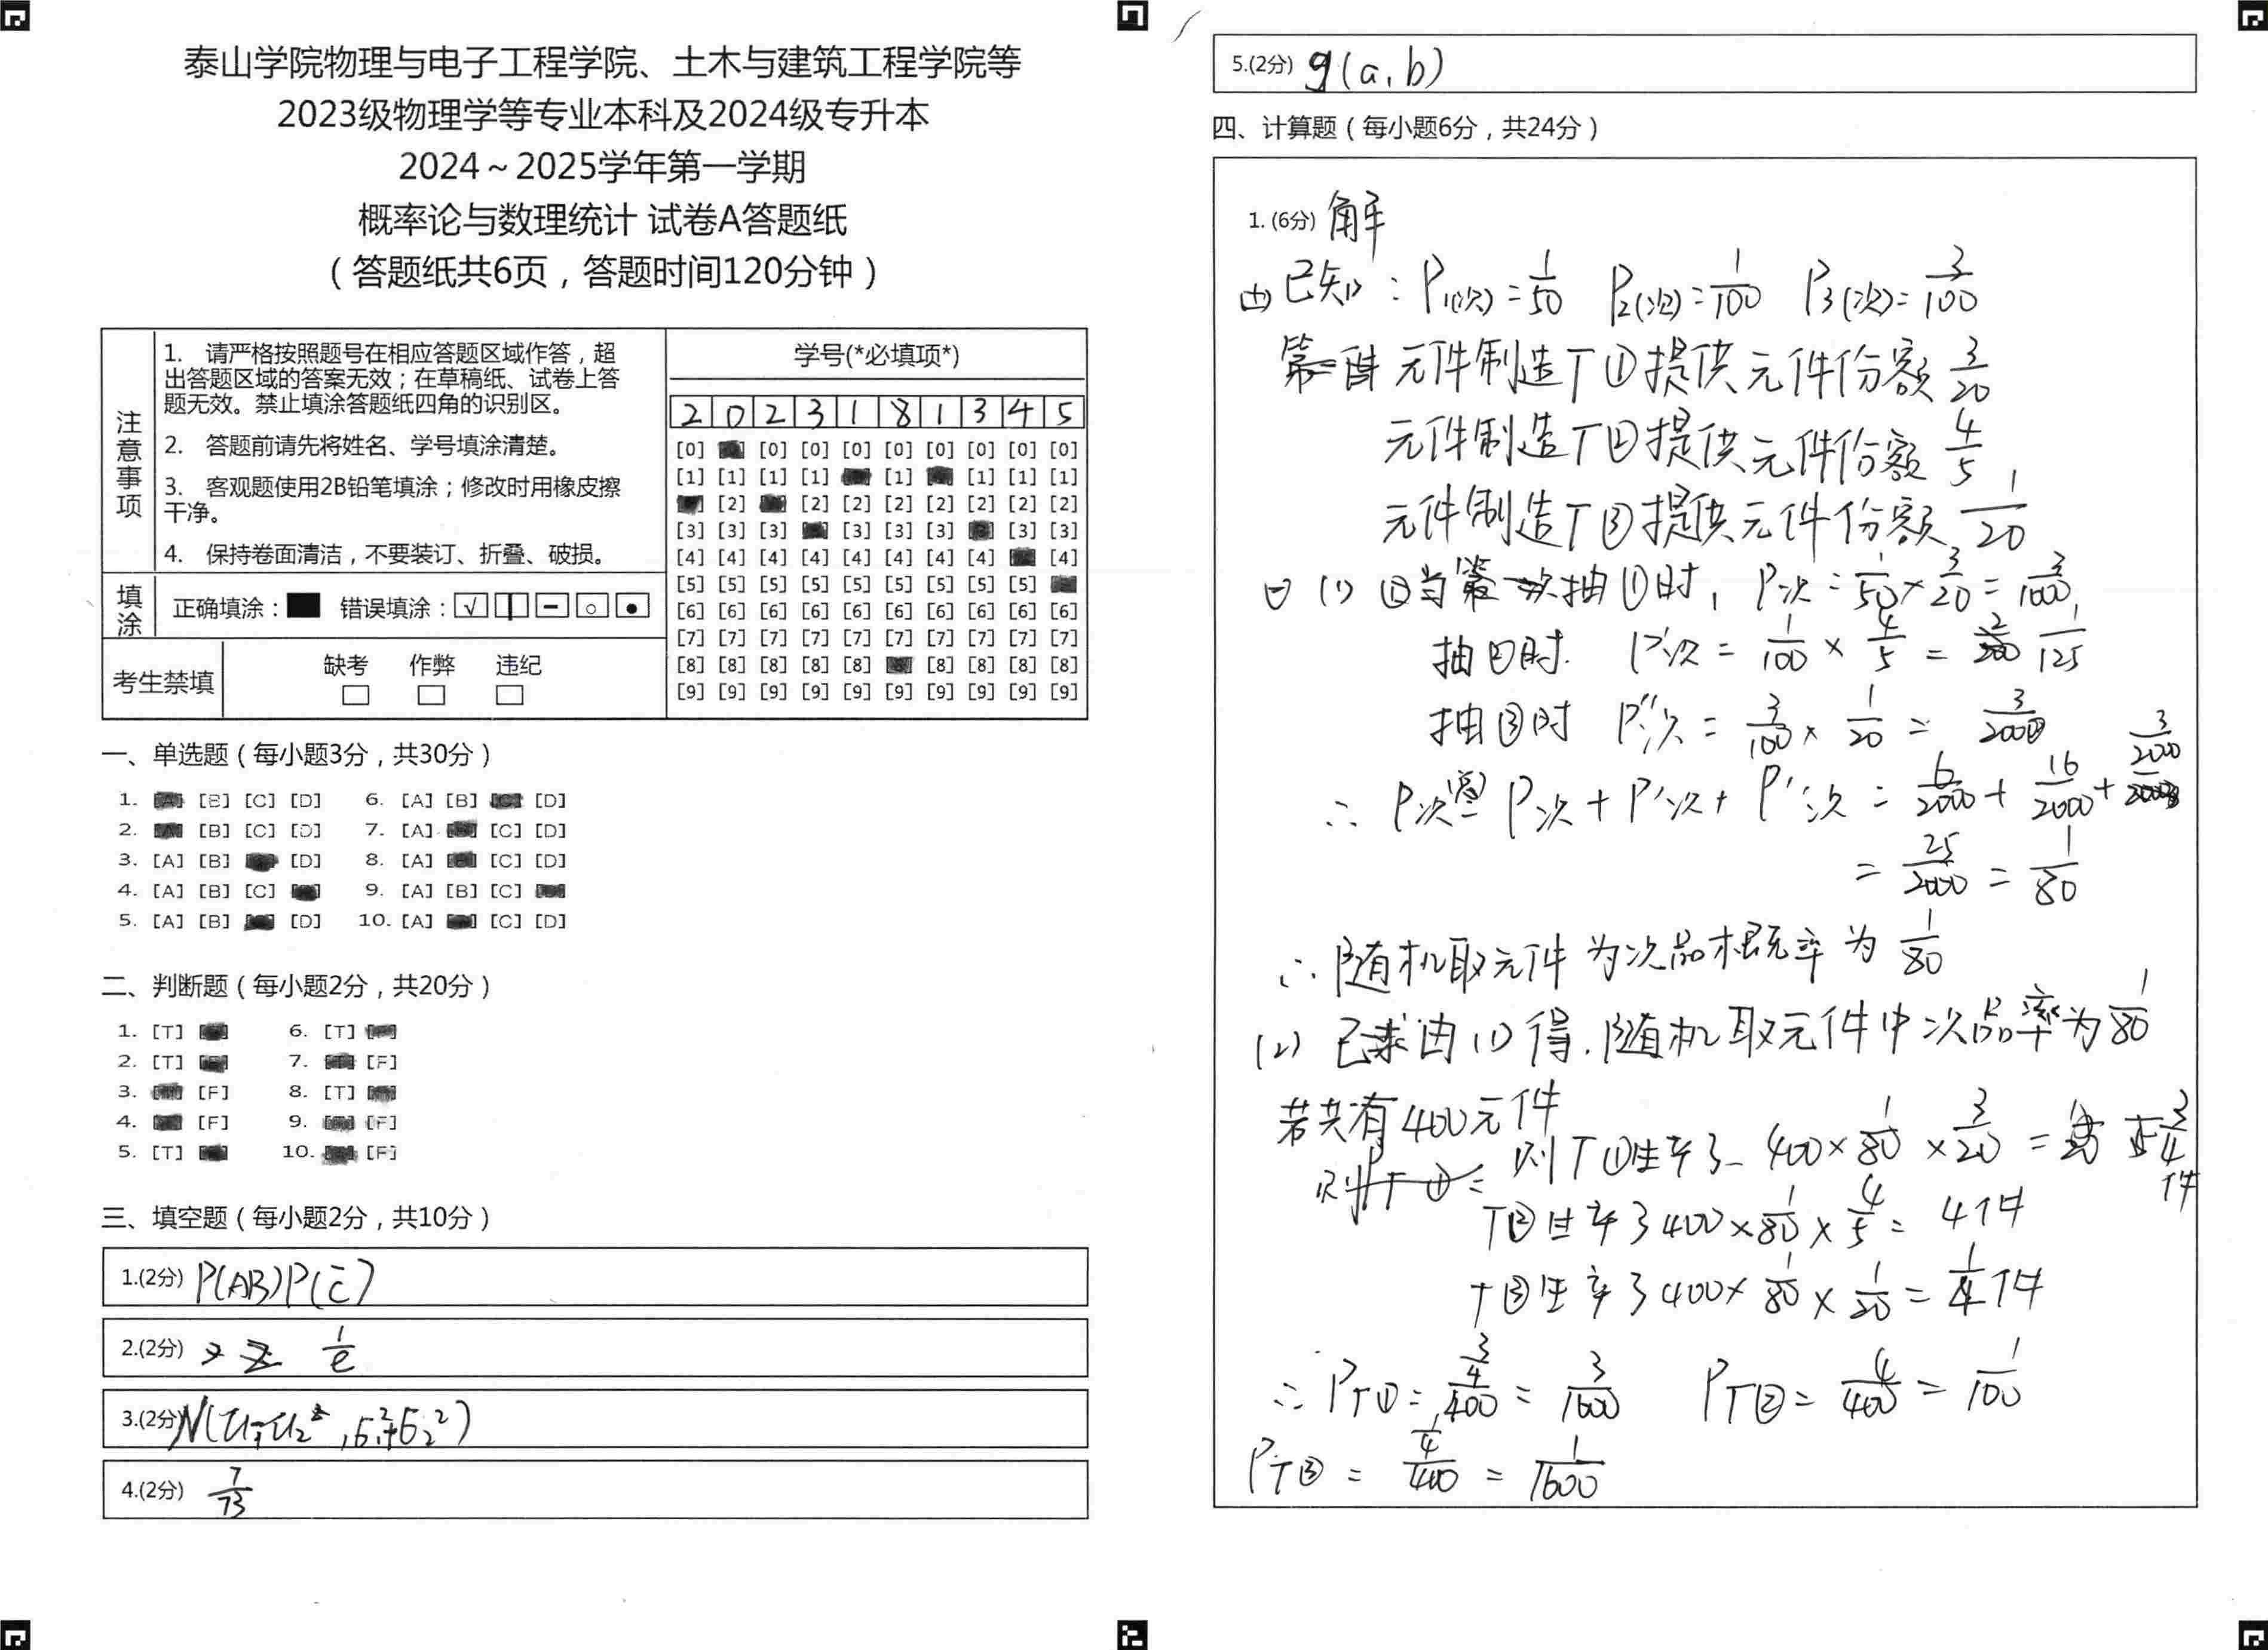 泰山学院物理与电子工程学院、土木与建筑工程学院等
2023级物理学等专业本科及2024级专升本
2024～2025学年第一学期
概率论与数理统计 试卷A答题纸
（答题纸共6页，答题时间120分钟）
注意事项
1. 请严格按照题号在相应答题区域作答，超
出答题区域的答案无效；在草稿纸、试卷上答
题无效。禁止填涂答题纸四角的识别区。
2. 答题前请先将姓名、学号填涂清楚。
3. 客观题使用2B铅笔填涂；修改时用橡皮擦
干净。
4. 保持卷面清洁，不要装订、折叠、破损。
填涂 正确填涂： 错误填涂：
考生禁填 缺考 作弊 违纪
学号(*必填项*)
2 0 2 3 1 8 1 3 4 5
[0] [0] [0] [0] [0] [0] [0] [0] [0]
[1] [1] [1] [1] [1] [1] [1] [1]
[2] [2] [2] [2] [2] [2] [2] [2]
[3] [3] [3] [3] [3] [3] [3] [3]
[4] [4] [4] [4] [4] [4] [4] [4] [4]
[5] [5] [5] [5] [5] [5] [5] [5] [5]
[6] [6] [6] [6] [6] [6] [6] [6] [6] [6]
[7] [7] [7] [7] [7] [7] [7] [7] [7] [7]
[8] [8] [8] [8] [8] [8] [8] [8] [8]
[9] [9] [9] [9] [9] [9] [9] [9] [9] [9]
一、单选题（每小题3分，共30分）
1. [B] [C] [D] 6. [A] [B] [D]
2. [B] [C] [D] 7. [A] [C] [D]
3. [A] [B] [D] 8. [A] [C] [D]
4. [A] [B] [C] 9. [A] [B] [C]
5. [A] [B] [D] 10. [A] [C] [D]
二、判断题（每小题2分，共20分）
1. [T] 6. [T]
2. [T] 7. [F]
3. [F] 8. [T]
4. [F] 9. [F]
5. [T] 10. [F]
三、填空题（每小题2分，共10分）
1.(2分) P(AB)P(C̄)
2.(2分) 1/e
3.(2分) N(u₁-u₂, б₁²+б₂²)
4.(2分) 7/73
5.(2分) g(a,b)
四、计算题（每小题6分，共24分）
1. (6分) 解
由已知：P1(次)=1/50 P2(次)=1/100 P3(次)=3/100
元件制造厂①提供元件份额 3/20
元件制造厂②提供元件份额 4/5
元件制造厂③提供元件份额 1/20
(1) 当抽①时，P次=1/50×3/20=3/1000
抽②时 P'次=1/100×4/5=1/125
抽③时 P''次=3/100×1/20=3/2000
∴P次总=P次+P'次+P''次=6/2000+16/2000+3/2000
=25/2000=1/80
∴随机取元件为次品概率为1/80
(2) 由(1)得.随机取元件中次品率为1/80
若共有400元件
则厂①生产了 400×1/80×3/20=3/4件
厂②生产了400×1/80×4/5=4件
厂③生产了400×1/80×1/20=1/4件
∴P厂①=3/4/400=3/1600 P厂②=4/400=1/100
P厂③=1/4/400=1/1600